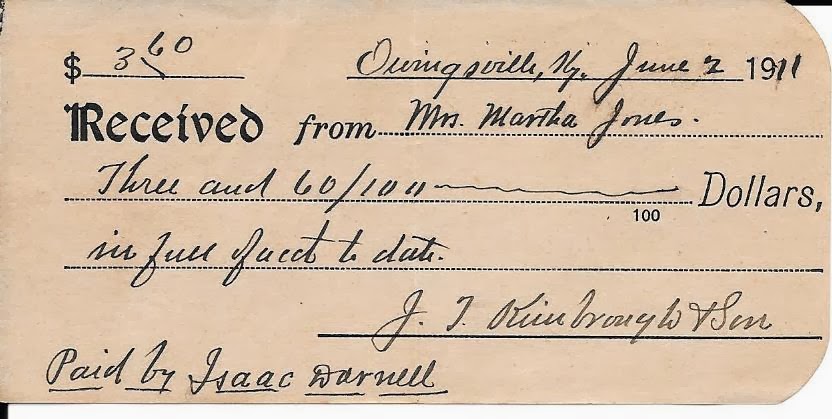 $ 3 60 Owingsville, Ky. June 2 1911
Received from Mrs. Martha Jones.
Three and 60/100 Dollars,
100
in full of acct to date.
J. T. Kimbrough & Son
Paid by Isaac Darnell